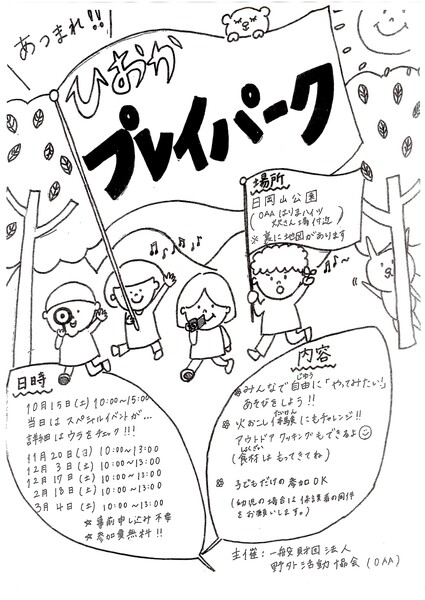 あつまれ!!
ひおか
プレイパーク
場所
日岡山公園
(OAAはりまハイツ
炊さん場付近)
※裏に地図があります
日時
10月15日(土) 10:00~15:00
当日はスペシャルイベントが…
詳細はウラをチェック!!!
11月20日(日) 10:00~13:00
12月3日(土) 10:00~13:00
12月17日(土) 10:00~13:00
2月18日(土) 10:00~13:00
3月4日(土) 10:00~13:00
☆事前申し込み不要
☆参加費無料!!
内容
みんなで自由(じゆう)に「やってみたい!」
あそびをしよう!!
火おこし体験(たいけん)にもチャレンジ!!
アウトドアクッキングもできるよ
(食材(しょくざい)はもってきてね)
子どもだけの参加OK
(幼児の場合は保護者の同伴
をお願いします。)
主催:一般財団法人
野外活動協会(OAA)